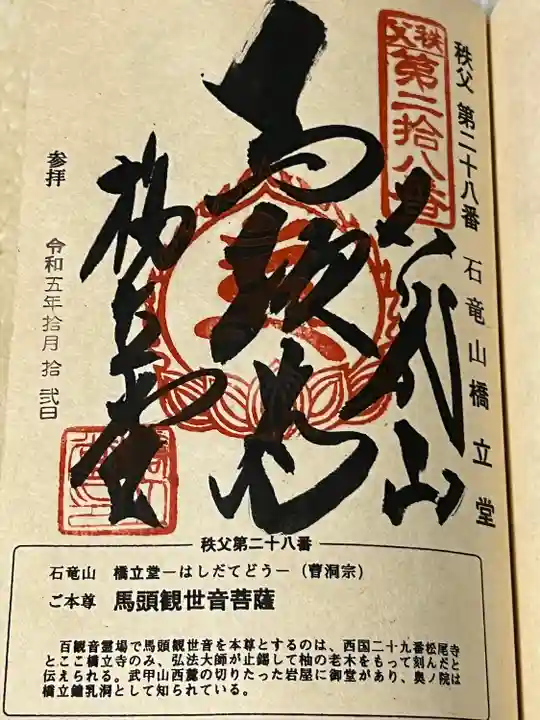 秩父 第二十八番 石竜山橋立堂
秩父
第二拾八番
石龍山
馬頭尊
橋立堂
参拝 令和五年拾月拾弐日
秩父第二十八番
石竜山 橋立堂−はしだてどう−（曹洞宗）
ご本尊 馬頭観世音菩薩
百観音霊場で馬頭観世音を本尊とするのは、西国二十九番松尾寺
とここ橋立寺のみ、弘法大師が止錫して柚の老木をもって刻んだと
伝えられる。武甲山西麓の切りたった岩屋に御堂があり、奥ノ院は
橋立鐘乳洞として知られている。